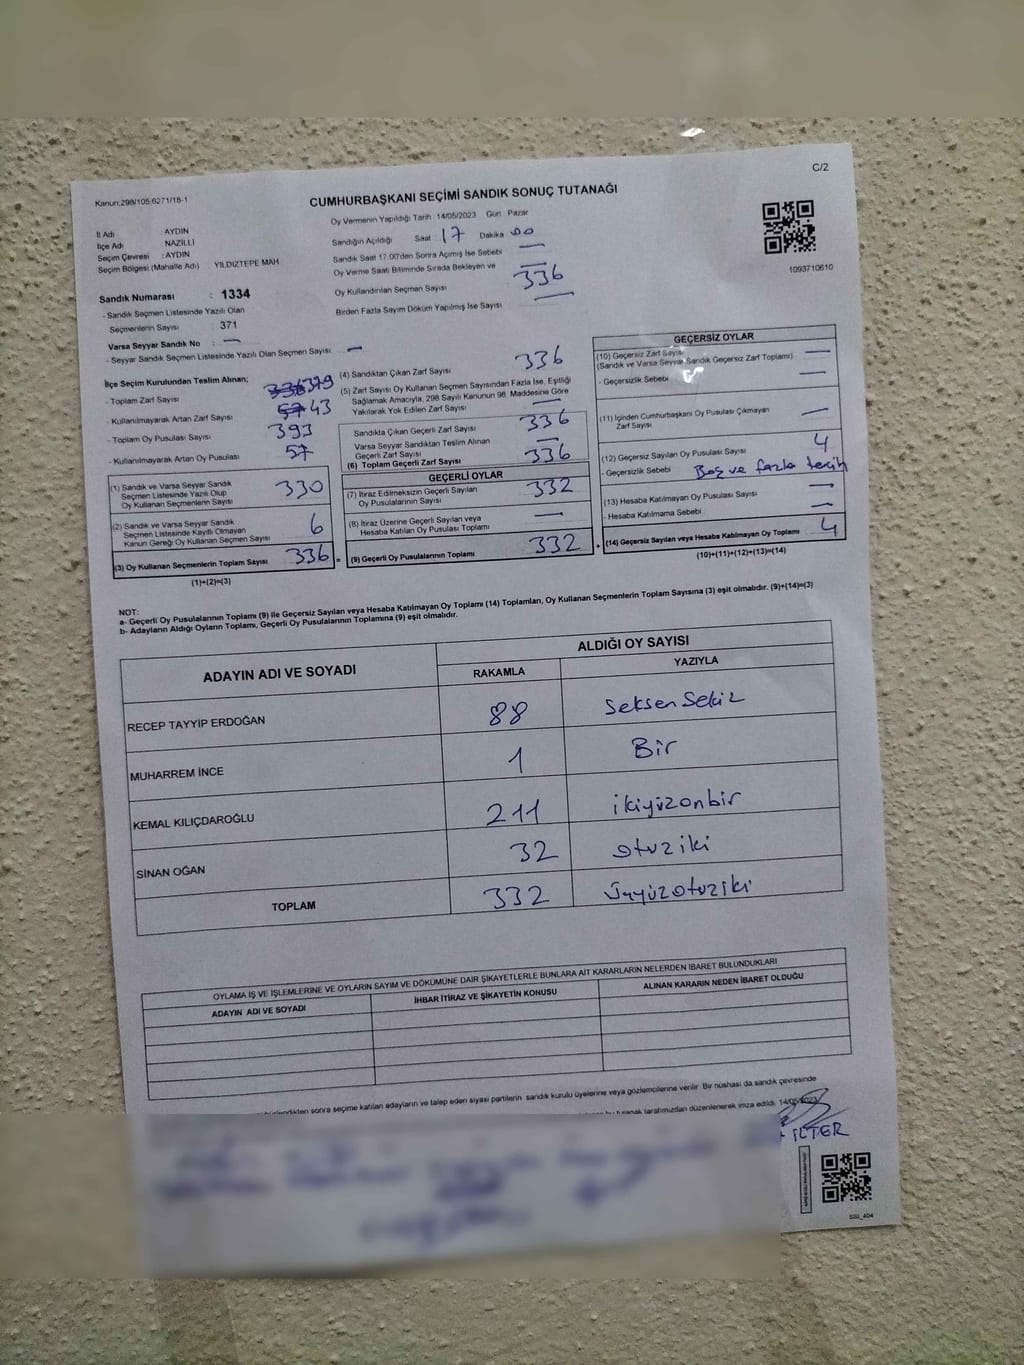 C/2
Kanun:298/105;6271/18-1
CUMHURBAŞKANI SEÇİMİ SANDIK SONUÇ TUTANAĞI
İl Adı AYDIN
İlçe Adı NAZİLLİ
Seçim Çevresi : AYDIN
Seçim Bölgesi (Mahalle Adı) YILDIZTEPE MAH
Sandık Numarası : 1334
- Sandık Seçmen Listesinde Yazılı Olan
Seçmenlerin Sayısı : 371
Varsa Seyyar Sandık No : —
- Seyyar Sandık Seçmen Listesinde Yazılı Olan Seçmen Sayısı : —
Oy Vermenin Yapıldığı Tarih 14/05/2023 Gün Pazar
Sandığın Açıldığı Saat 17 Dakika 00
Sandık Saat 17.00'den Sonra Açılmış İse Sebebi —
Oy Verme Saati Bitiminde Sırada Bekleyen ve —
Oy Kullandırılan Seçmen Sayısı 336
Birden Fazla Sayım Döküm Yapılmış İse Sayısı —
1093710610
İlçe Seçim Kurulundan Teslim Alınan;
- Toplam Zarf Sayısı 336 379
- Kullanılmayarak Artan Zarf Sayısı 57 43
- Toplam Oy Pusulası Sayısı 393
- Kullanılmayarak Artan Oy Pusulası 57
(1) Sandık ve Varsa Seyyar Sandık
Seçmen Listesinde Yazılı Olup
Oy Kullanan Seçmenlerin Sayısı 330
(2) Sandık ve Varsa Seyyar Sandık
Seçmen Listesinde Kayıtlı Olmayan
Kanun Gereği Oy Kullanan Seçmen Sayısı 6
(3) Oy Kullanan Seçmenlerin Toplam Sayısı 336 =
(1)+(2)=(3)
(4) Sandıktan Çıkan Zarf Sayısı 336
(5) Zarf Sayısı Oy Kullanan Seçmen Sayısından Fazla İse, Eşitliği
Sağlamak Amacıyla, 298 Sayılı Kanunun 98. Maddesine Göre
Yakılarak Yok Edilen Zarf Sayısı —
Sandıkta Çıkan Geçerli Zarf Sayısı 336
Varsa Seyyar Sandıktan Teslim Alınan
Geçerli Zarf Sayısı —
(6) Toplam Geçerli Zarf Sayısı 336
GEÇERLİ OYLAR
(7) İtiraz Edilmeksizin Geçerli Sayılan
Oy Pusulalarının Sayısı 332
(8) İtiraz Üzerine Geçerli Sayılan veya
Hesaba Katılan Oy Pusulası Toplamı —
(9) Geçerli Oy Pusulalarının Toplamı 332 +
GEÇERSİZ OYLAR
(10) Geçersiz Zarf Sayısı —
(Sandık ve Varsa Seyyar Sandık Geçersiz Zarf Toplamı)
- Geçersizlik Sebebi —
(11) İçinden Cumhurbaşkanı Oy Pusulası Çıkmayan
Zarf Sayısı —
(12) Geçersiz Sayılan Oy Pusulası Sayısı 4
- Geçersizlik Sebebi Boş ve fazla tercih
(13) Hesaba Katılmayan Oy Pusulası Sayısı —
- Hesaba Katılmama Sebebi —
(14) Geçersiz Sayılan veya Hesaba Katılmayan Oy Toplamı 4
(10)+(11)+(12)+(13)=(14)
NOT:
a- Geçerli Oy Pusulalarının Toplamı (9) ile Geçersiz Sayılan veya Hesaba Katılmayan Oy Toplamı (14) Toplamları, Oy Kullanan Seçmenlerin Toplam Sayısına (3) eşit olmalıdır. (9)+(14)=(3)
b- Adayların Aldığı Oyların Toplamı, Geçerli Oy Pusulalarının Toplamına (9) eşit olmalıdır.
ADAYIN ADI VE SOYADI ALDIĞI OY SAYISI
RAKAMLA YAZIYLA
RECEP TAYYİP ERDOĞAN 88 Seksen Sekiz
MUHARREM İNCE 1 Bir
KEMAL KILIÇDAROĞLU 211 ikiyüzonbir
SİNAN OĞAN 32 otuziki
TOPLAM 332 üçyüzotuziki
OYLAMA İŞ VE İŞLEMLERİNE VE OYLARIN SAYIM VE DÖKÜMÜNE DAİR ŞİKAYETLERLE BUNLARA AİT KARARLARIN NELERDEN İBARET BULUNDUKLARI
ADAYIN ADI VE SOYADI İHBAR İTİRAZ VE ŞİKAYETİN KONUSU ALINAN KARARIN NEDEN İBARET OLDUĞU
sonra seçime katılan adayların ve talep eden siyasi partilerin sandık kurulu üyelerine veya gözlemcilerine verilir. Bir nüshası da sandık çevresinde
bu tutanak tarafımızdan düzenlenerek imza edildi. 14/05/2023
İLTER